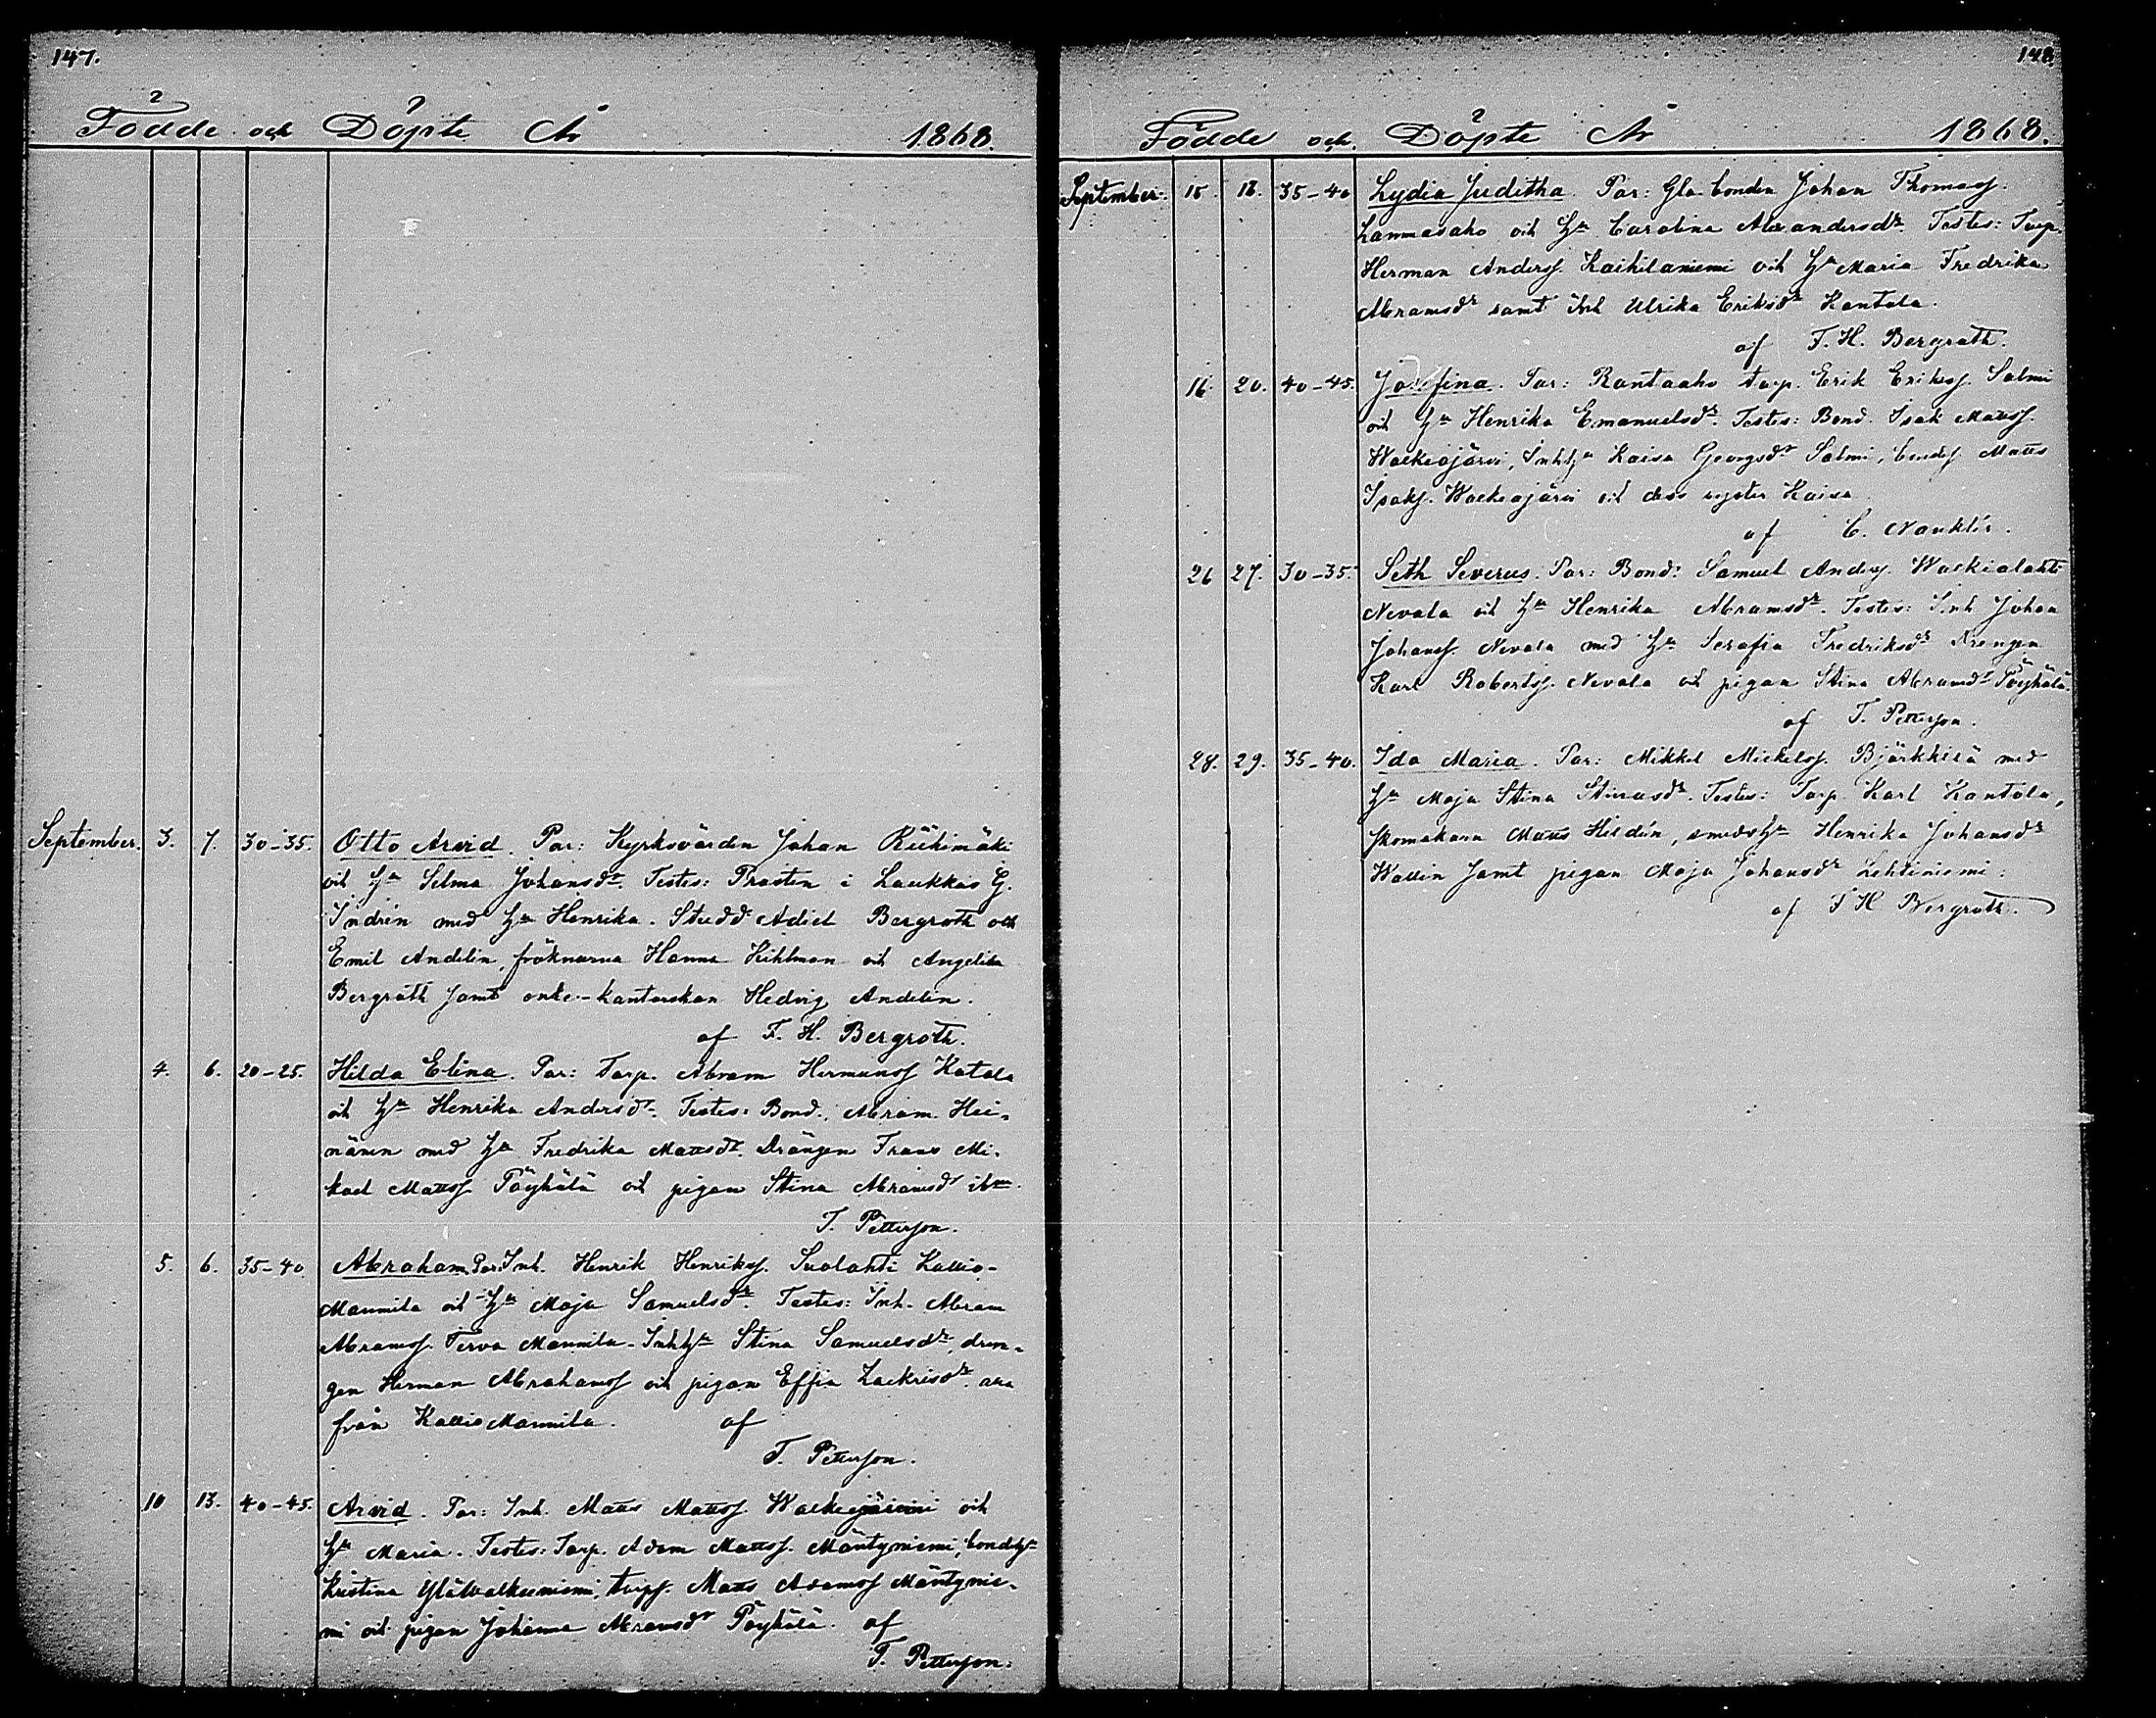 147.
Födde och Döpte År 1868.
September. 3. 7. 30-35. Otto Arvid. Par: Kyrkovärden Johan Riihimäki
och H:n Selma Johansdr. Testes: Prosten i Laukkas G.
Indrén med H:n Henrika. Studd: Adiel Bergroth och
Emil Andelin, fröknarna Hanna Kihlman och Angelika
Bergroth samt enke-kantorskan Hedvig Andelin.
af F. H. Bergroth.
4. 6. 20-25. Hilda Elina. Par: Torp. Abram Hermanss Katala
och H:n Henrika Andersdr. Testes: Bond. Abram Hei-
nänen med H:n Fredrika Mattsdr. Drängen Frans Mi-
kael Mattss Pöyhälä och pigan Stina Abramsdr ibm.
T. Petterson.
5. 6. 35-40. Abraham. Par: Inh. Henrik Henrikss. Suolahti Kallio-
Mannila och H:n Maja Samuelsdr. Testes: Inh. Abram
Abramss. Terva Mannila. Inhh:n Stina Samuelsdr, dren-
gen Herman Abrahamss och pigan Effia Zackrisdr. alla
från Kallio Mannila. af
T. Petterson.
10 13. 40-45. Arvid. Par: Inh. Matts Mattss. och
H:n Maria. Testes: Torp. Adam Mattss. Mäntyniemi, bondh:n
Kristina torps. Matts Adamss Mäntynie-
mi och pigan Johanna Abramsdr Pöyhälä. af
T. Petterson.
148.
Födde och Döpte År 1868.
September. 15. 18. 35-40 Lydia Juditha. Par: bonden Johan Thomass.
Lammasaho och H:n Carolina Alexandersdr. Testes: Torp.
Herman Anderss. Kaihilaniemi och H:n Maria Fredrika
Abramsdr samt inh Ulrika Eriksdr Kantola.
af F. H. Bergroth.
16. 20. 40-45. Josefina. Par: Rantaaho torp. Erik Erikss. Salmi
och H:n Henrika Emanuelsdr. Testes: Bond. Isak Mattss.
Walkeajärvi, Inhh:n Kaisa Georgsdr Salmi, bondes Matts
Isakss. Walkeajärvi och dess syster Kaisa.
af C. Nauklér.
26 27. 30-35. Seth Severus. Par: Bond: Samuel Anderss. Walkialahti
Nevala och H:n Henrika Abramsdr. Testes: Inh Johan
Johanss. Nevala med H:n Serafia Fredriksdr drengen
Karl Robertss. Nevala och pigan Stina Abramsdr Pöyhälä.
af T. Petterson.
28. 29. 35-40. Ida Maria. Par: Mikkel Mickelss. Björkkilä med
H:n Maja Stina Testes: Torp. Karl Kantola,
skomakarn Matts Hildén, smedsh:n Henrika Johansdr
Wallin samt pigan Maja Johansdr Lehtiniemi.
af F H Bergroth.